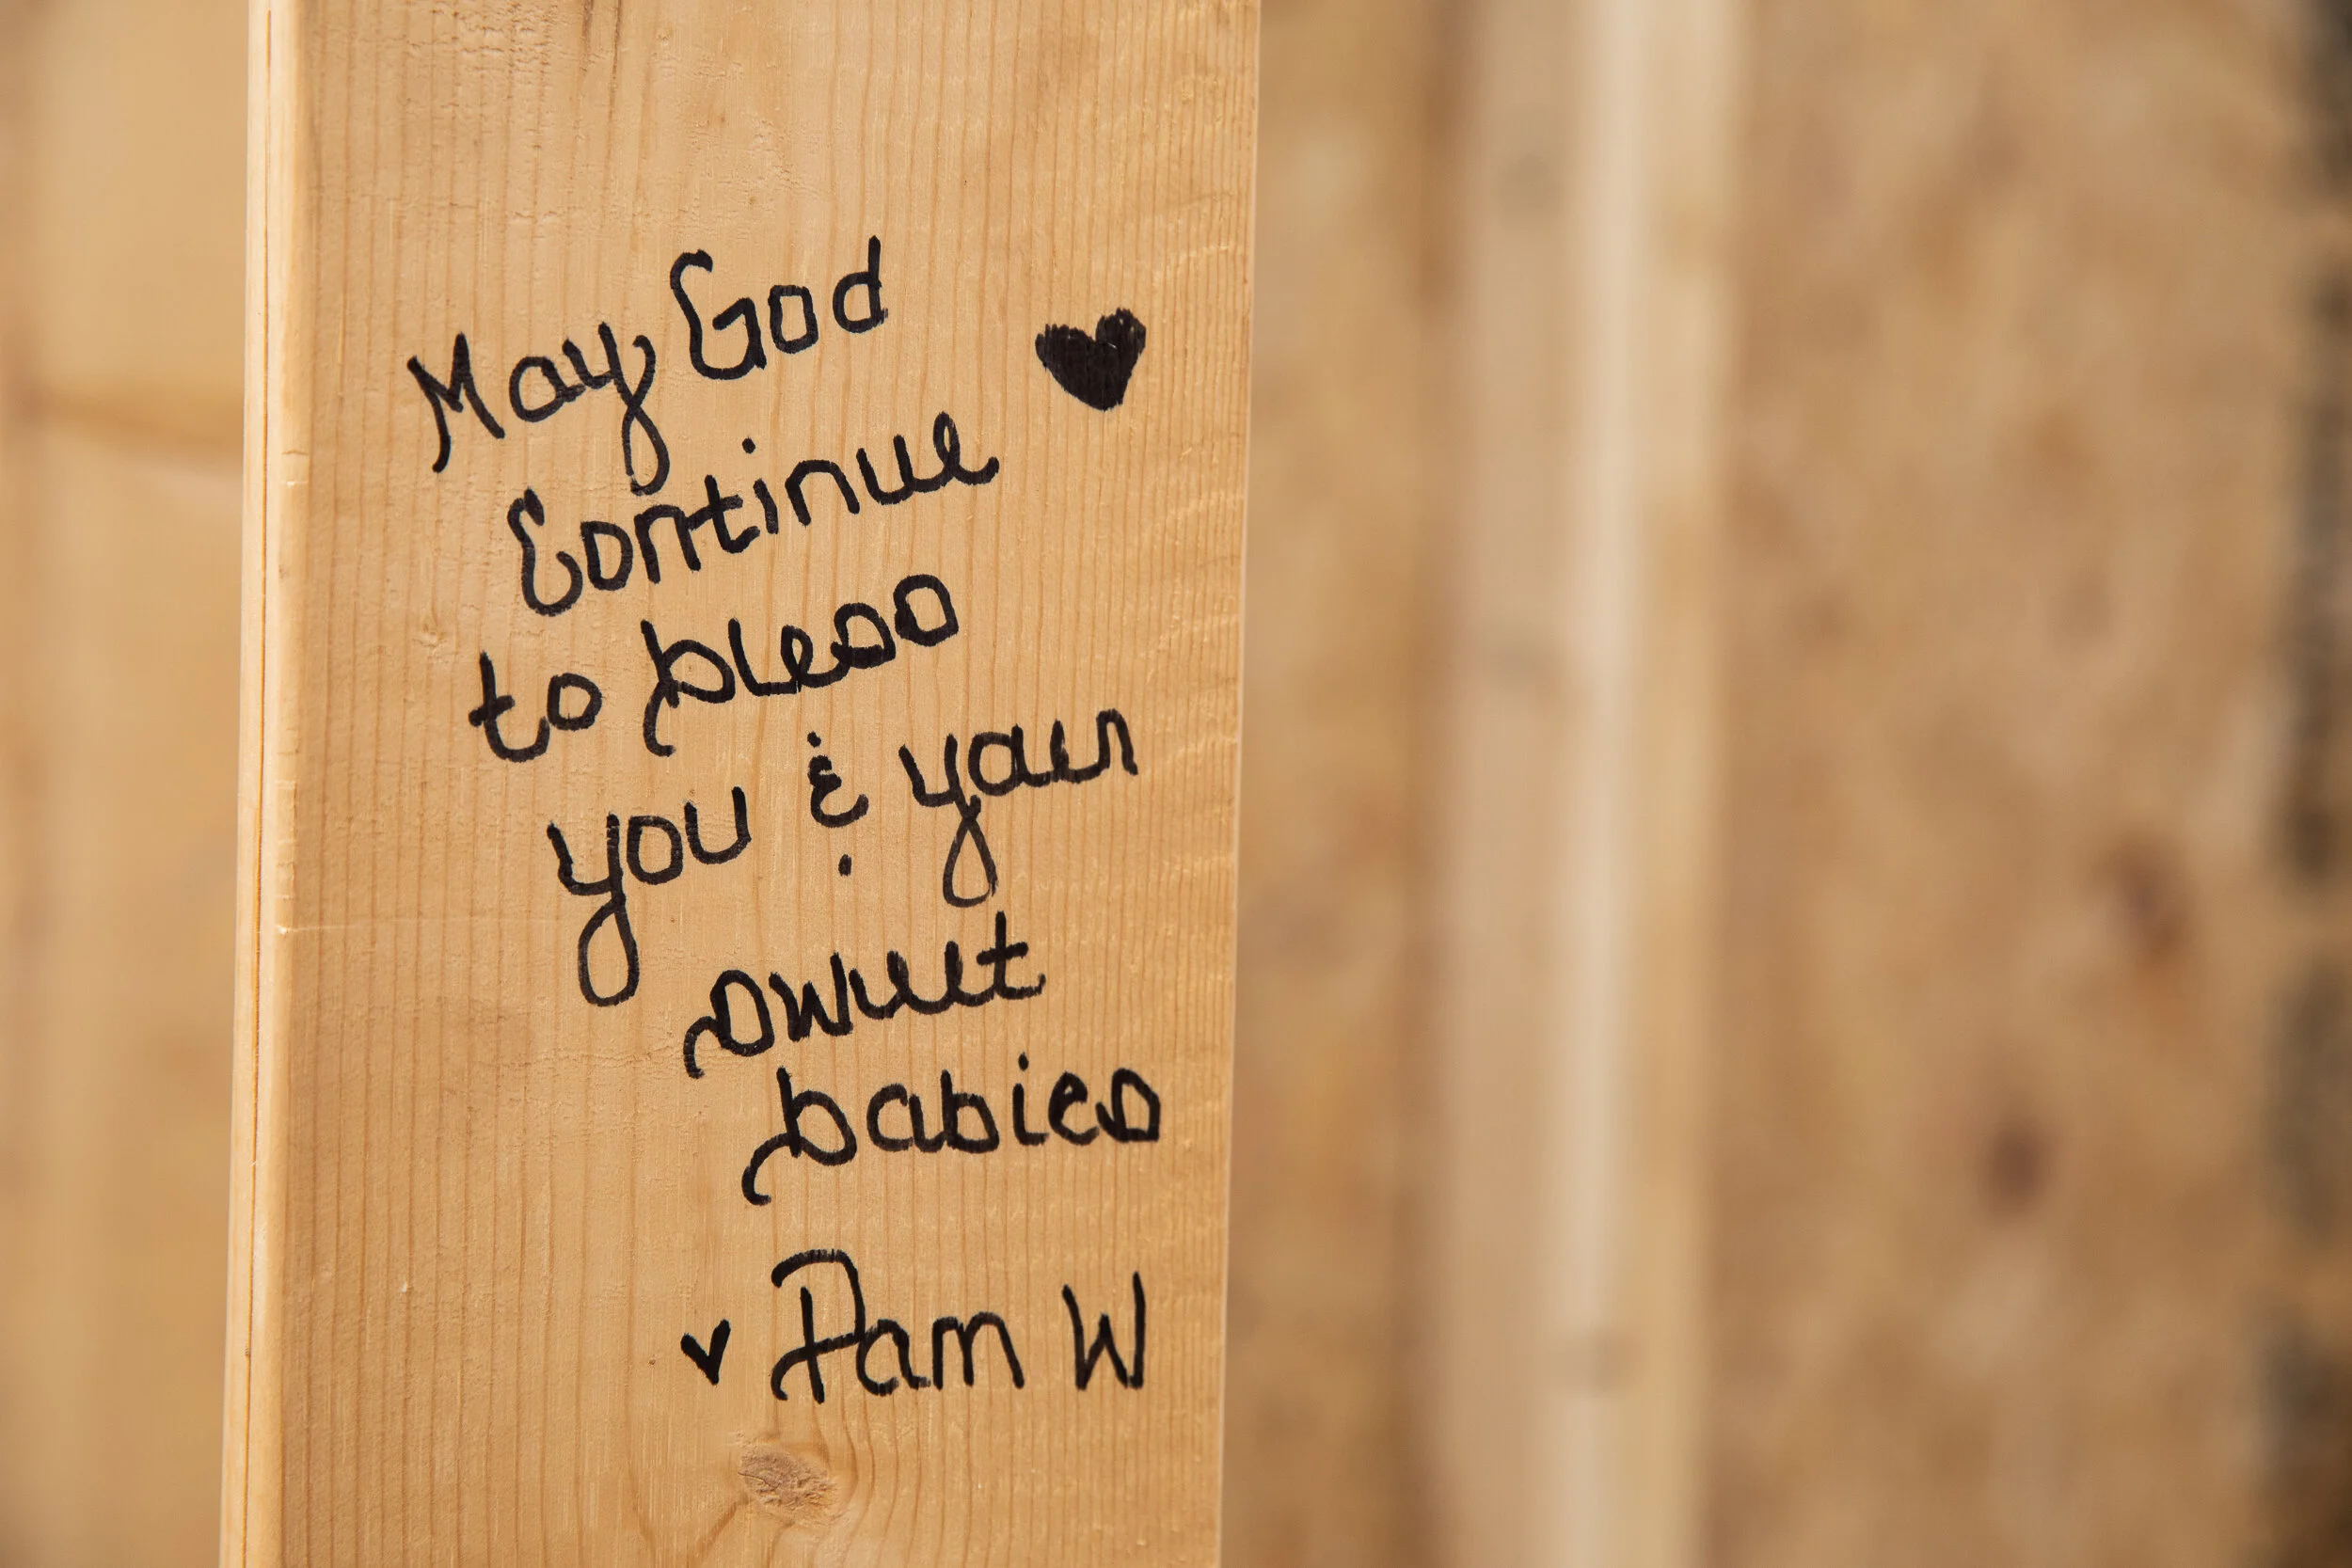 May God
Continue
to bless
you & your
sweet
babies
Pam W